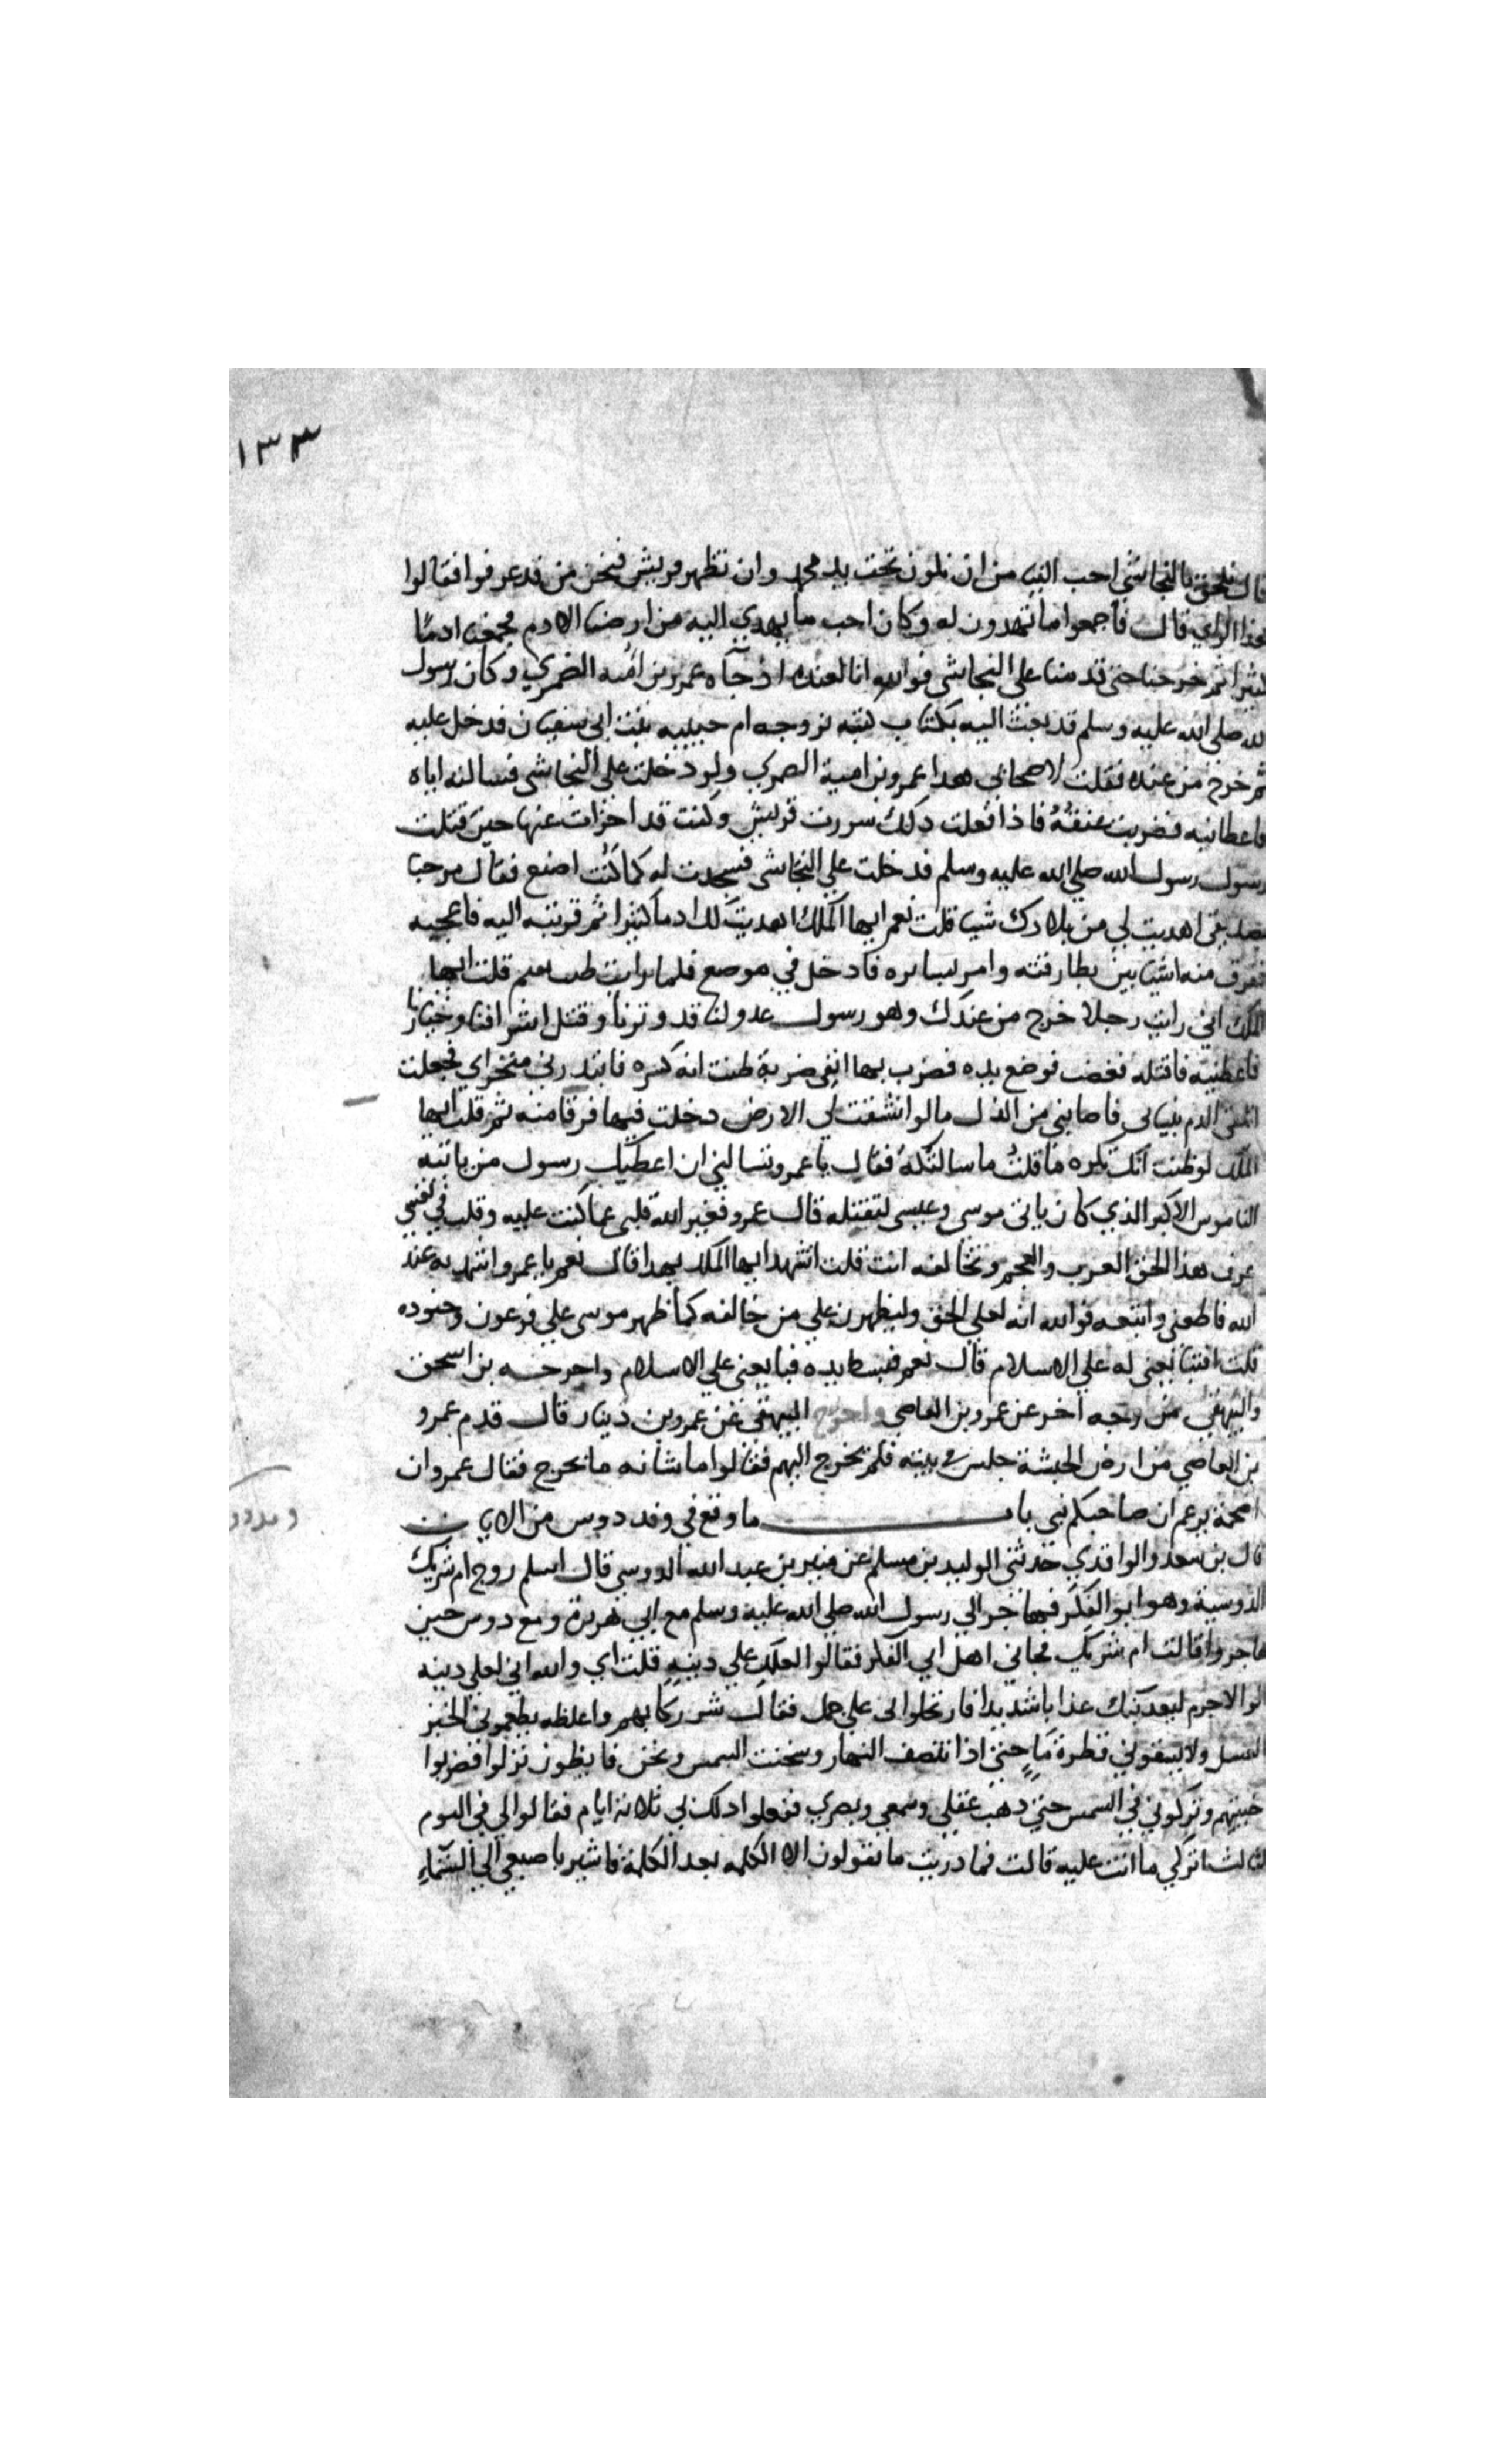 ١٣٣
قال نلحق بالنجاشي احب الينا من ان نكون تحت يد محمد وان تظهر قريش فنحن من قد عرفوا فقالوا
هذا الراي قال فاجمعوا ما تهدون له وكان احب ما يهدي اليه من ارضنا الادم فجمعنا ادمًا
كثيرا ثم خرجنا حتى قدمنا على النجاشي فوالله انا لعنده اذ جاه عمرو بن اميه الضمري وكان رسول
الله صلى الله عليه وسلم قد بعث اليه بكتاب كتبه يزوجه ام حبيبه بنت ابي سفيان فدخل عليه
ثم خرج من عنده فقلت لاصحابي هذا عمرو بن امية الضمري ولو دخلت على النجاشي فسالته اياه
فاعطانيه فضربت عنقهُ فاذا فعلت ذلك سررت قريش وكنت قد اجزات عنها حين قتلت
رسول رسول الله صلي الله عليه وسلم فدخلت علي النجاشي فسجدت له كما كنُت اصنع فقال مرحبا
بصديقي اهديت لي من بلادك شيا قلت نعم ايها الملك اهديت لك ادما كثيرا ثم قربته اليه فاعجبه
ففرق منه اشيا بين بطارقته وامر بسايره فادخل في موضع فلما رايت طيب نفسه قلت ايها
الملك اني رايت رجلا خرج من عندك وهو رسول عدو لنا قد وترنا وقتل اشرافنا وخيارنا
فاعطنيه فاقتله فغضب فرفع يده فضرب بها انفي ضربة ظننت انه كسره فابتدر مني منخراي فجعلت
اتلقى الدم بثيابي فاصابني من الذل ما لو انشقت لي الارض دخلت فيها فرقا منه ثم قلت ايها
الملك لو ظننت انك تكره ما قلتُ ما سالتكهُ فقال يا عمرو تسالني ان اعطيك رسول من ياتيه
الناموس الاكبر الذي كان ياتي موسي وعيسى لتقتله قال عمرو فغير الله قلبي عما كنت عليه وقلت في نفسي
عرف هذا الحق العرب والعجم وتخالفه انت قلت اتشهد ايها الملك بهذا قال نعم يا عمرو اشهد به عند
الله فاطعني واتبعه فوالله انه لعلي الحق وليظهرن علي من خالفه كما ظهر موسى علي فرعون وجنوده
قلت افتبايعني له علي الاسلام قال نعم فبسط يده فبايعني علي الاسلام واخرجه بن اسحق
والبيهقي من وجه اخر عن عمرو بن العاصي واخرج البيهقي عن عمرو بن دينار قال قدم عمرو
بن العاصي من ارض الحبشة جلس في بيته فلم يخرج اليهم فقالوا ما شانه ما يخرج فقال عمرو ان
اصحمة يزعم ان صاحبكم نبي باب ما وقع في وفد دوس من الايات
قال بن سعد والواقدي حدثني الوليد بن مسلم عن منير بن عبد الله الدوسي قال اسلم زوج ام شريك
الدوسية وهو ابو العكر فهاجر الي رسول الله صلى الله عليه وسلم مع ابي هريرة ومع دوس حين
هاجروا قالت ام شريك فجاني اهل ابي العكر فقالوا لعلك علي دينهِ قلت اي والله اني لعلي دينه
قالوا لاجرم لنعذبنك عذابا شديدا فارتحلوا لى على جمل فقال شر ركابهم واغلظه يطعموني الخبز
بالعسل ولا يسقوني قطرة مَاءٍ حتى اذا انتصف النهار وسخنت الشمس ونحن قايظون نزلوا فضربوا
خبيتهم وتركوني في الشمس حتى ذهب عقلي وسمعي وبصري ففعلوا ذلك بي ثلاثة ايام فقالوا لي في اليوم
الثالث اتركي ما انت عليه قالت فما دريت ما يقولون الا الكلمه بعد الكلمة فاشير باصبعي الي السَّماءِ